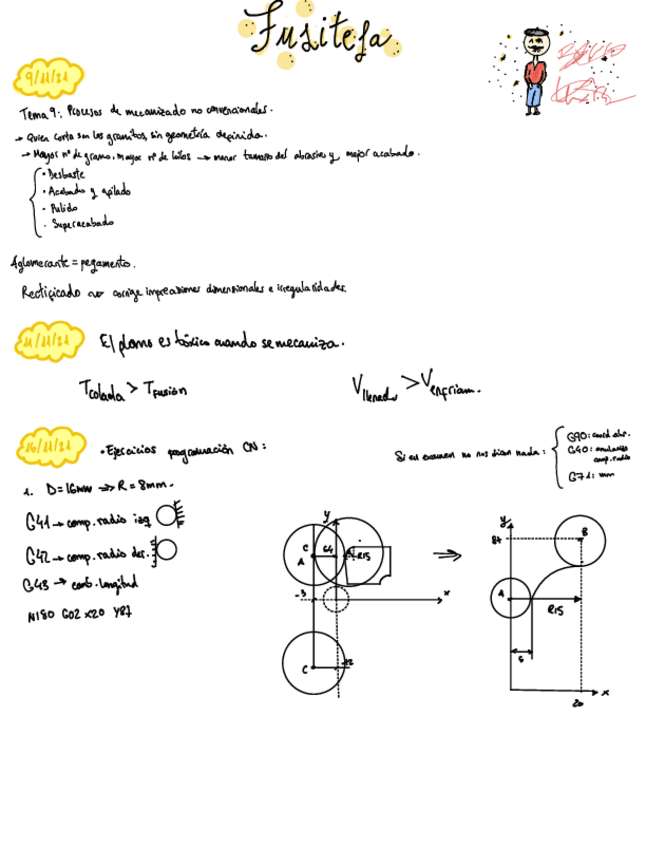 Fusitefa
9/11/21
Tema 9: Procesos de mecanizado no convencionales.
→ Quien corta son los granitos, sin geometría definida.
→ Mayor nº de grano, mayor nº de hilos → menor tamaño del abrasivo y mejor acabado.
• Desbaste
• Acabado y afilado
- Pulido
- Superacabado
Aglomerante = pegamento.
Rectificado → corrige imprecisiones dimensionales e irregularidades.
11/11/21
El plomo es tóxico cuando se mecaniza.
Tcolada > Tfusión
Vllenado > Venfriam.
16/11/21
• Ejercicios programación CN:
Si en examen no nos dicen nada:
G90: coord abs.
G40: anulación
comp. radio
G71: mm
1. D = 16mm ⇒ R = 8mm.
G41 → comp. radio izq
G42 → comp. radio der.
G43 → comp. longitud
N180 G02 X20 Y87
y
C
A
G4
R15
-3
x
C
-12
y
87
B
A
R15
5
x
20